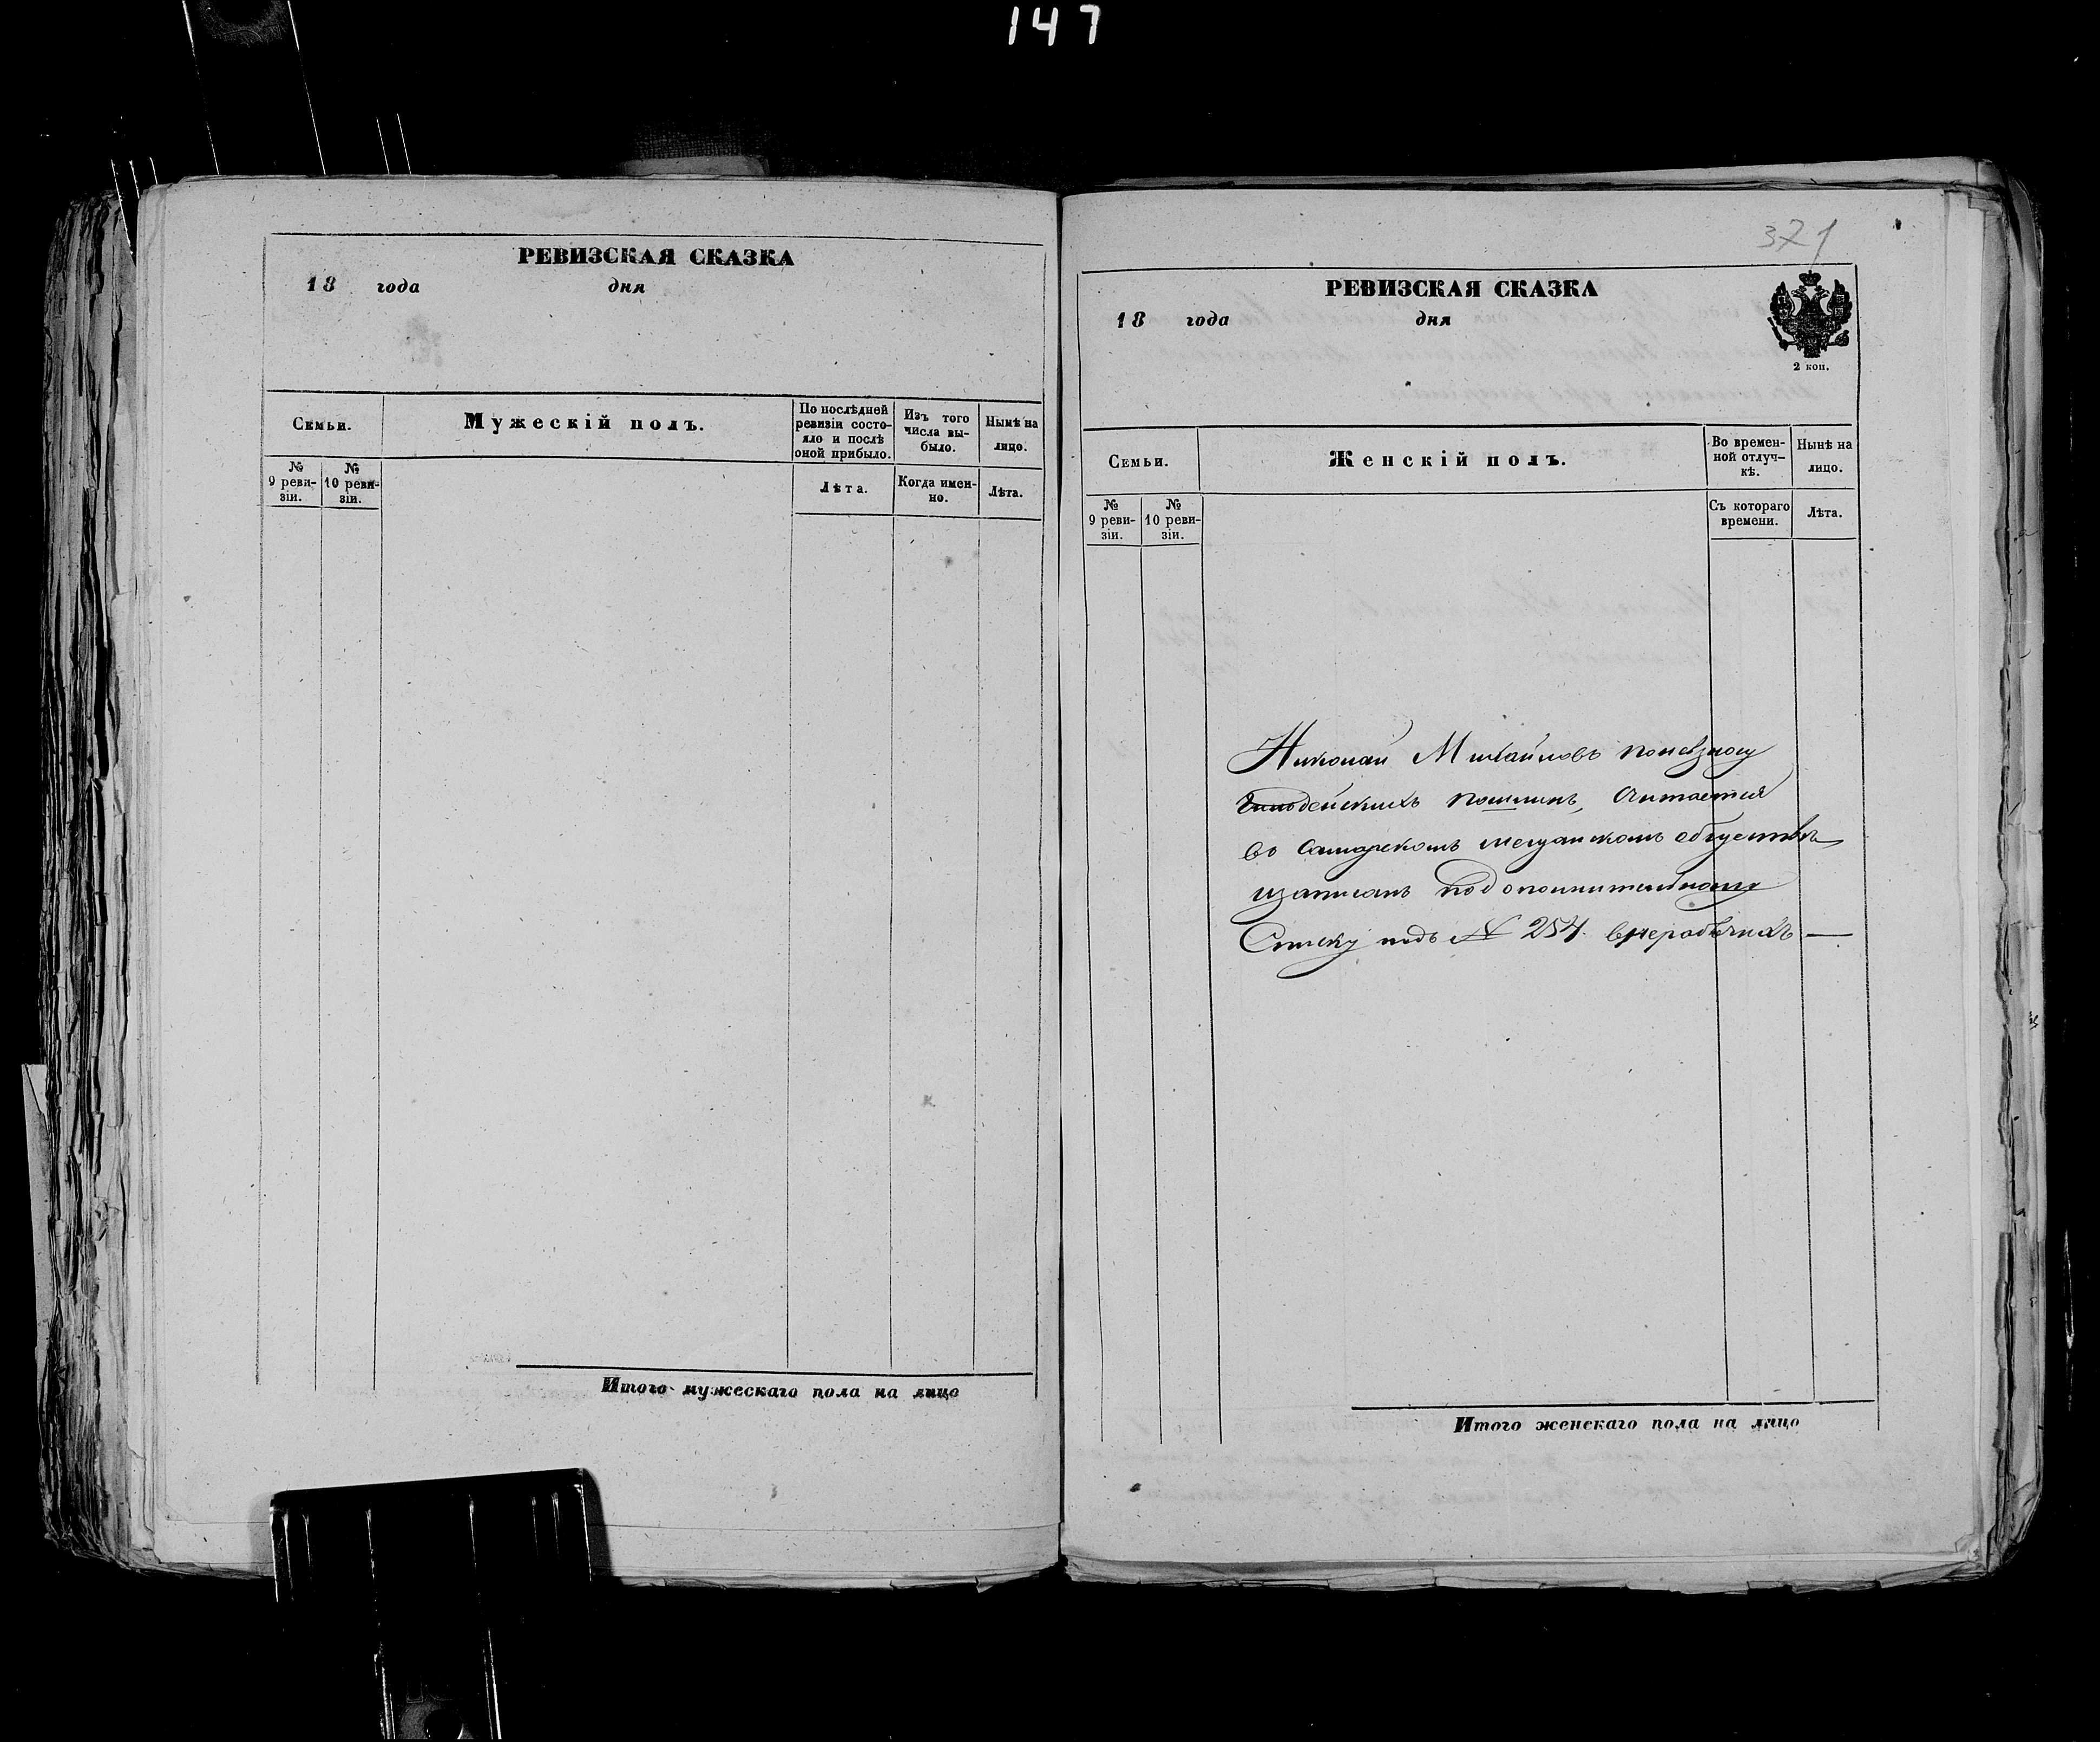 147
РЕВИЗСКАЯ СКАЗКА
18 года дня
Семьи.
Мужескій полъ.
По послѣдней
ревизіи состо-
яло и послѣ
оной прибыло.
Изъ того
числа вы-
было.
Нынѣ на
лицо.
№
9 реви-
зіи.
№
10 реви-
зіи.
Лѣта.
Когда имен-
но.
Лѣта.
Итого мужескаго пола на лицо
371
РЕВИЗСКАЯ СКАЗКА
18 года дня
2 коп.
Семьи.
Женскій полъ.
Во времен-
ной отлуч-
кѣ.
Нынѣ на
лицо.
№
9 реви-
зіи.
№
10 реви-
зіи.
Съ котораго
времени.
Лѣта.
Николай Михайловъ
пошлинъ, считается
въ самарскомъ мещанскомъ обществѣ
изаписанъ подополнительному
Списку подъ № 254.
Итого женскаго пола на лицо